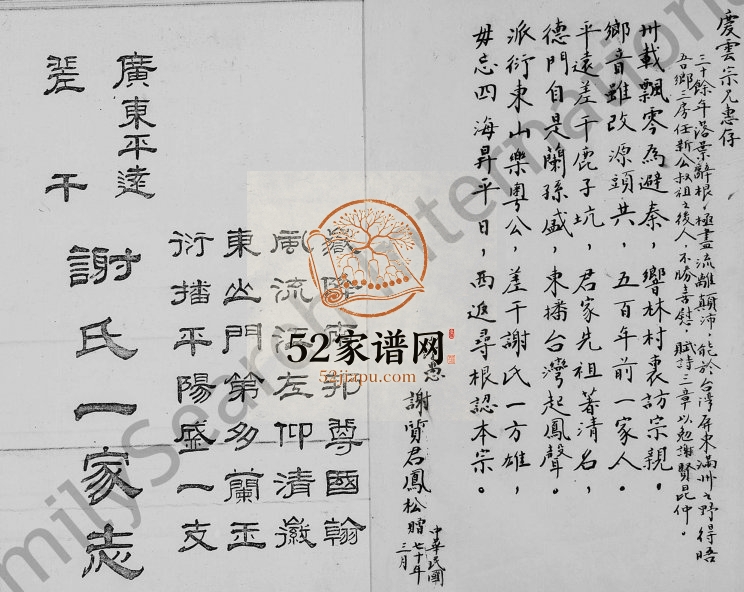 慶雲宗兄惠存
三十餘年落葉辭根，極盡流離顛沛，能於台灣屏東滿州之野得晤
吾鄉三房任新公叔祖之後人，不勝喜慰，賦詩三章以勉謝賢昆仲。
卅載飄零為避秦，響林村裏訪宗親。
鄉音雖改源頭共，五百年前一家人。
平遠差干鹿子坑，君家先祖著清名，
德門自是蘭孫盛，東播台灣起鳳聲。
派衍東山樂粵公，差干謝氏一方雄，
毋忘四海昇平日，西返尋根認本宗。
愚 謝質君鳳松贈
中華民國
七十年
三月
嶽降南邦尊國翰
風流江左仰清徽
東山門第多蘭玉
衍播平陽盛一支
廣東平遠
差干
謝氏一家志
52家谱网
52jiapu.com
milySearch International